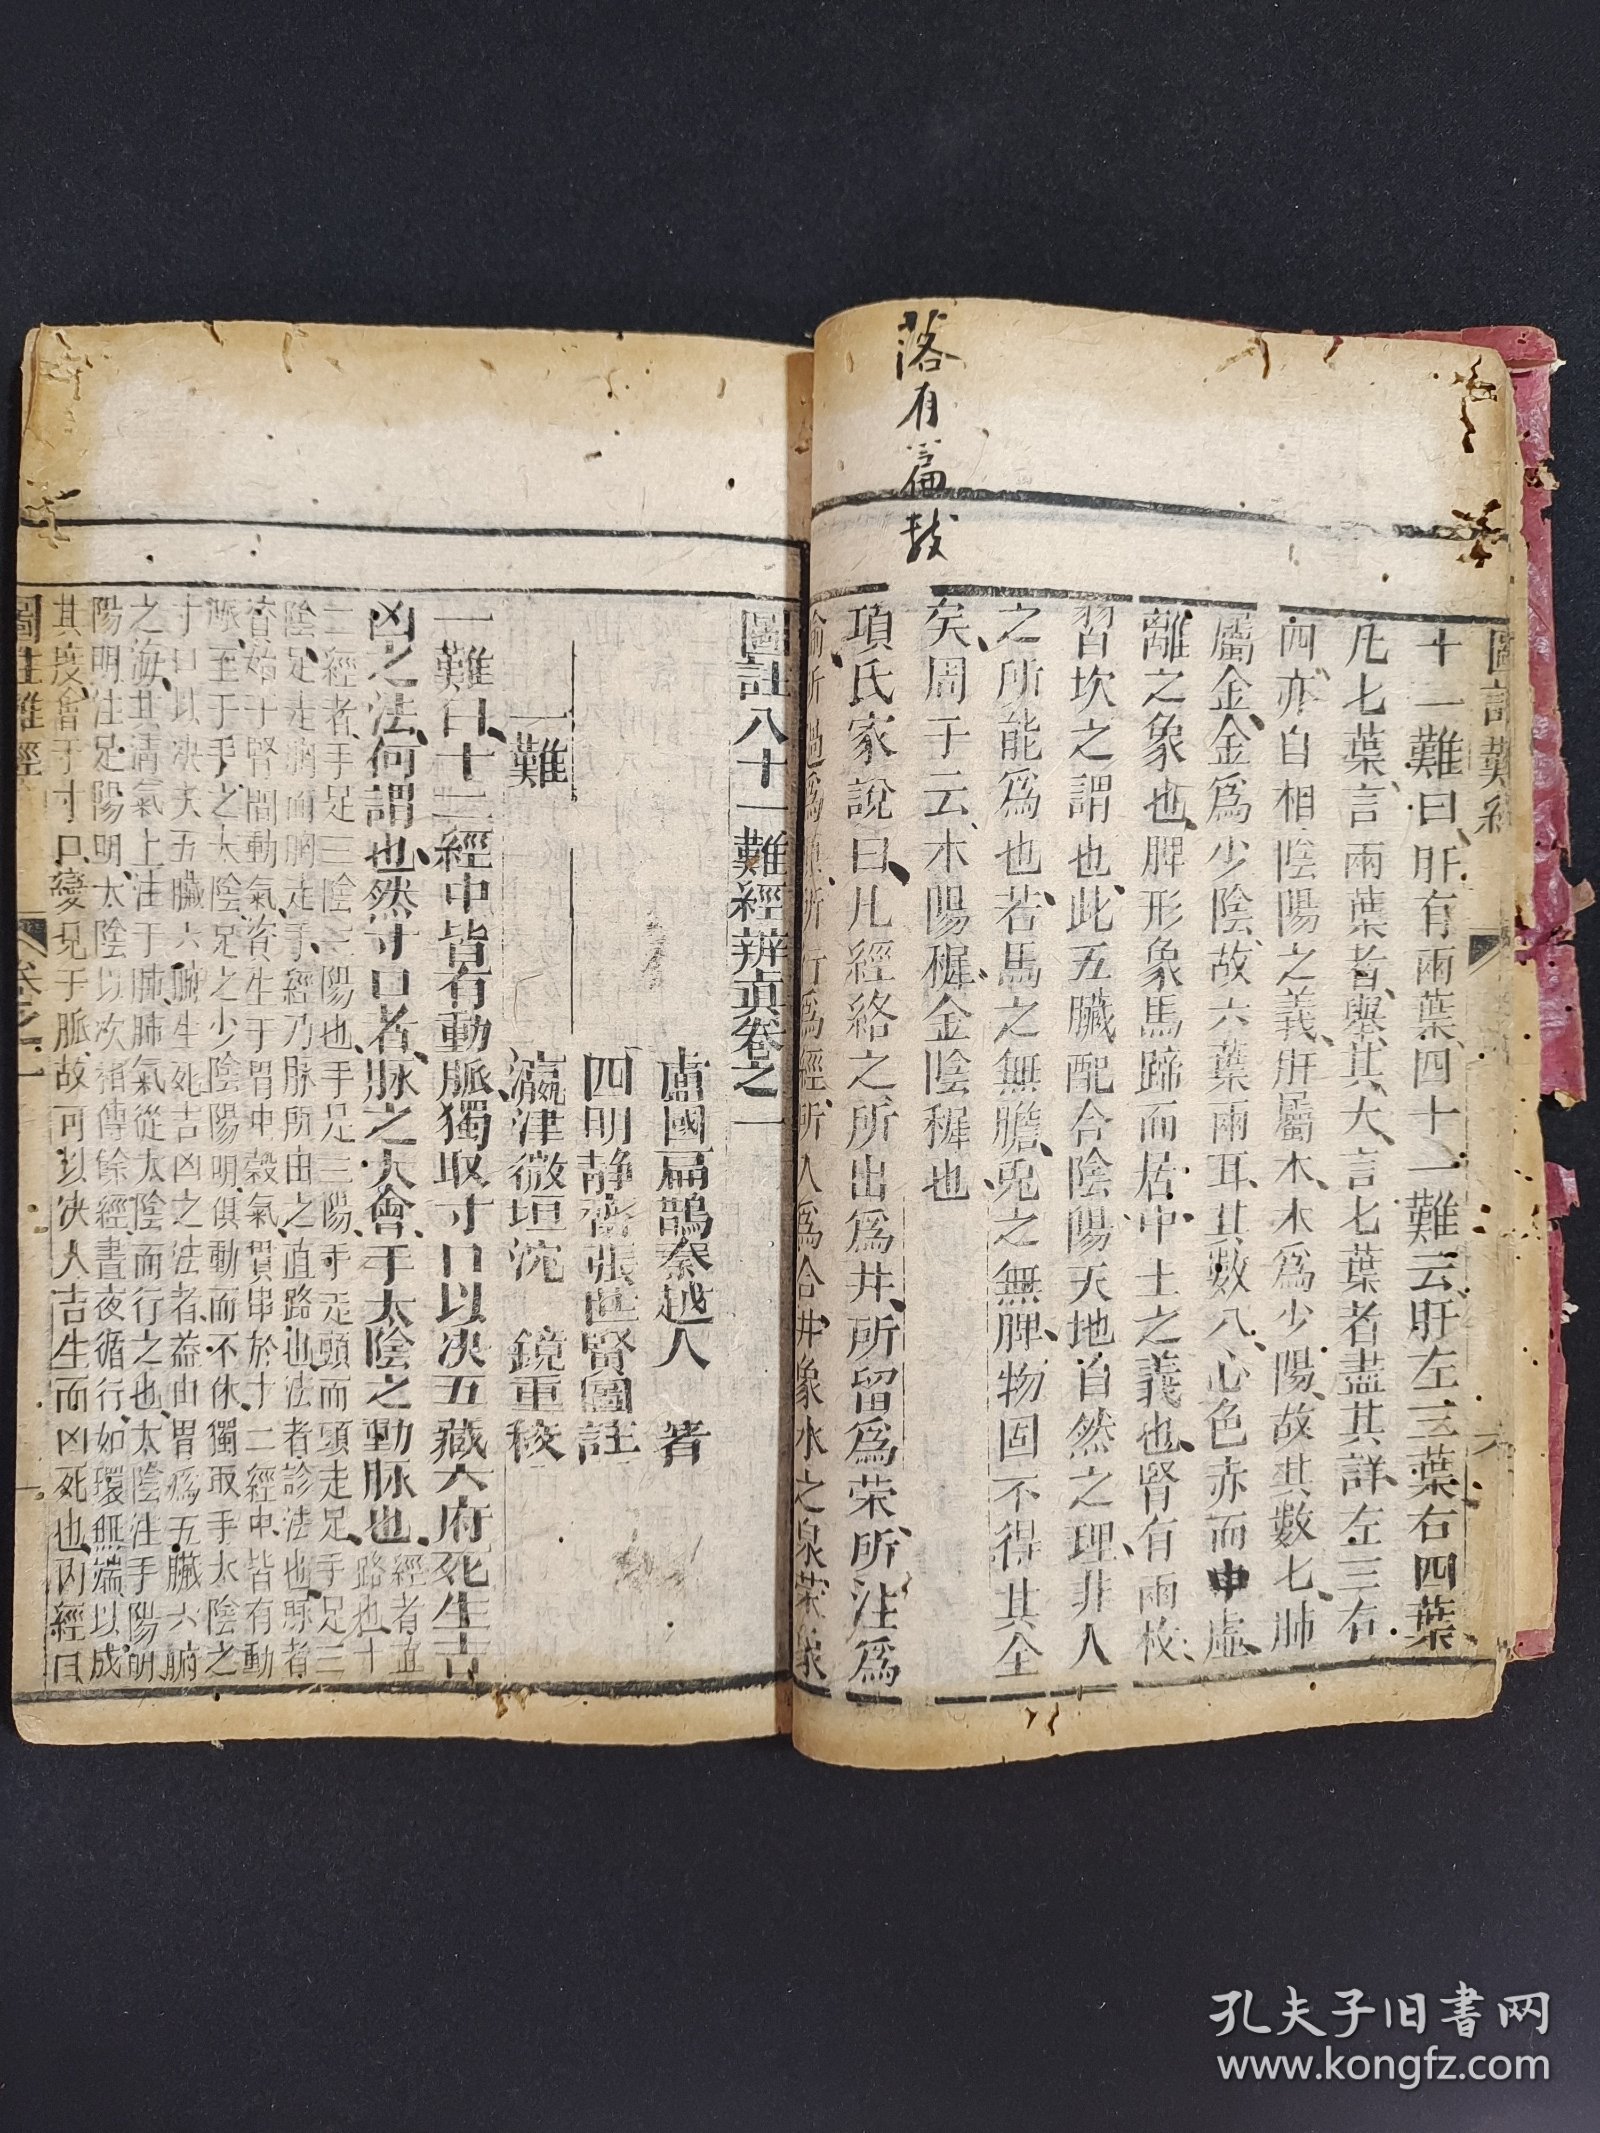 落有篇数
圖註難經
十一難曰、肝有兩葉、四十一難云、肝左三葉右四葉
凡七葉、言兩葉者、舉其大、言七葉者盡其詳、左三右
四亦自相陰陽之義、肝屬木、木爲少陽、故其數七、肺
屬金、金爲少陰、故六葉兩耳、其數八、心色赤而中虛
離之象也、脾形象馬蹄而居中土之義也、腎有兩枚
習坎之謂也、此五臟配合陰陽、天地自然之理、非人
之所能爲也、若馬之無膽、兎之無脾、物固不得其全
矣、周子云、木陽穉、金陰穉也
項氏家說曰、凡經絡之所出爲井、所留爲荣、所注爲
所過爲 所行爲經、所入爲合、井象水之泉、荣象
圖註八十一難經辨真卷之一
盧國扁鵲秦越人 著
四明靜齋張世賢圖註
瀛津微垣沈 鏡重校
一難
一難曰、十二經中皆有動脈、獨取寸口以决五藏六府死生吉
凶之法、何謂也、然寸口者、脉之大會、手太陰之動脉也、
經者直
路也十
二經者、手足三陰三陽也、手足三陽、手走頭而頭走足、手足三
陰、足走胸而胸走手、經乃脉所由之直路也、法者診法也、脉者
皆始于腎間動氣、資生于胃中穀氣、貫串於十二經中、皆有動
脈、至于手之太陰足之少陰陽明、俱動而不休、獨取手太陰之
寸口以决夫五臟六腑生死吉凶之法者、益由胃爲五臟六腑
之海、其清氣上注于肺、肺氣從太陰而行之也、太陰注手陽明、
陽明注足陽明、太陰以次相傳餘經、晝夜循行、如環無端、以成
其度、會于寸口、變見于脈、故可以决人吉生而凶死也、内經曰
圖註難經
卷之一
一
孔夫子旧书网
www.kongfz.com